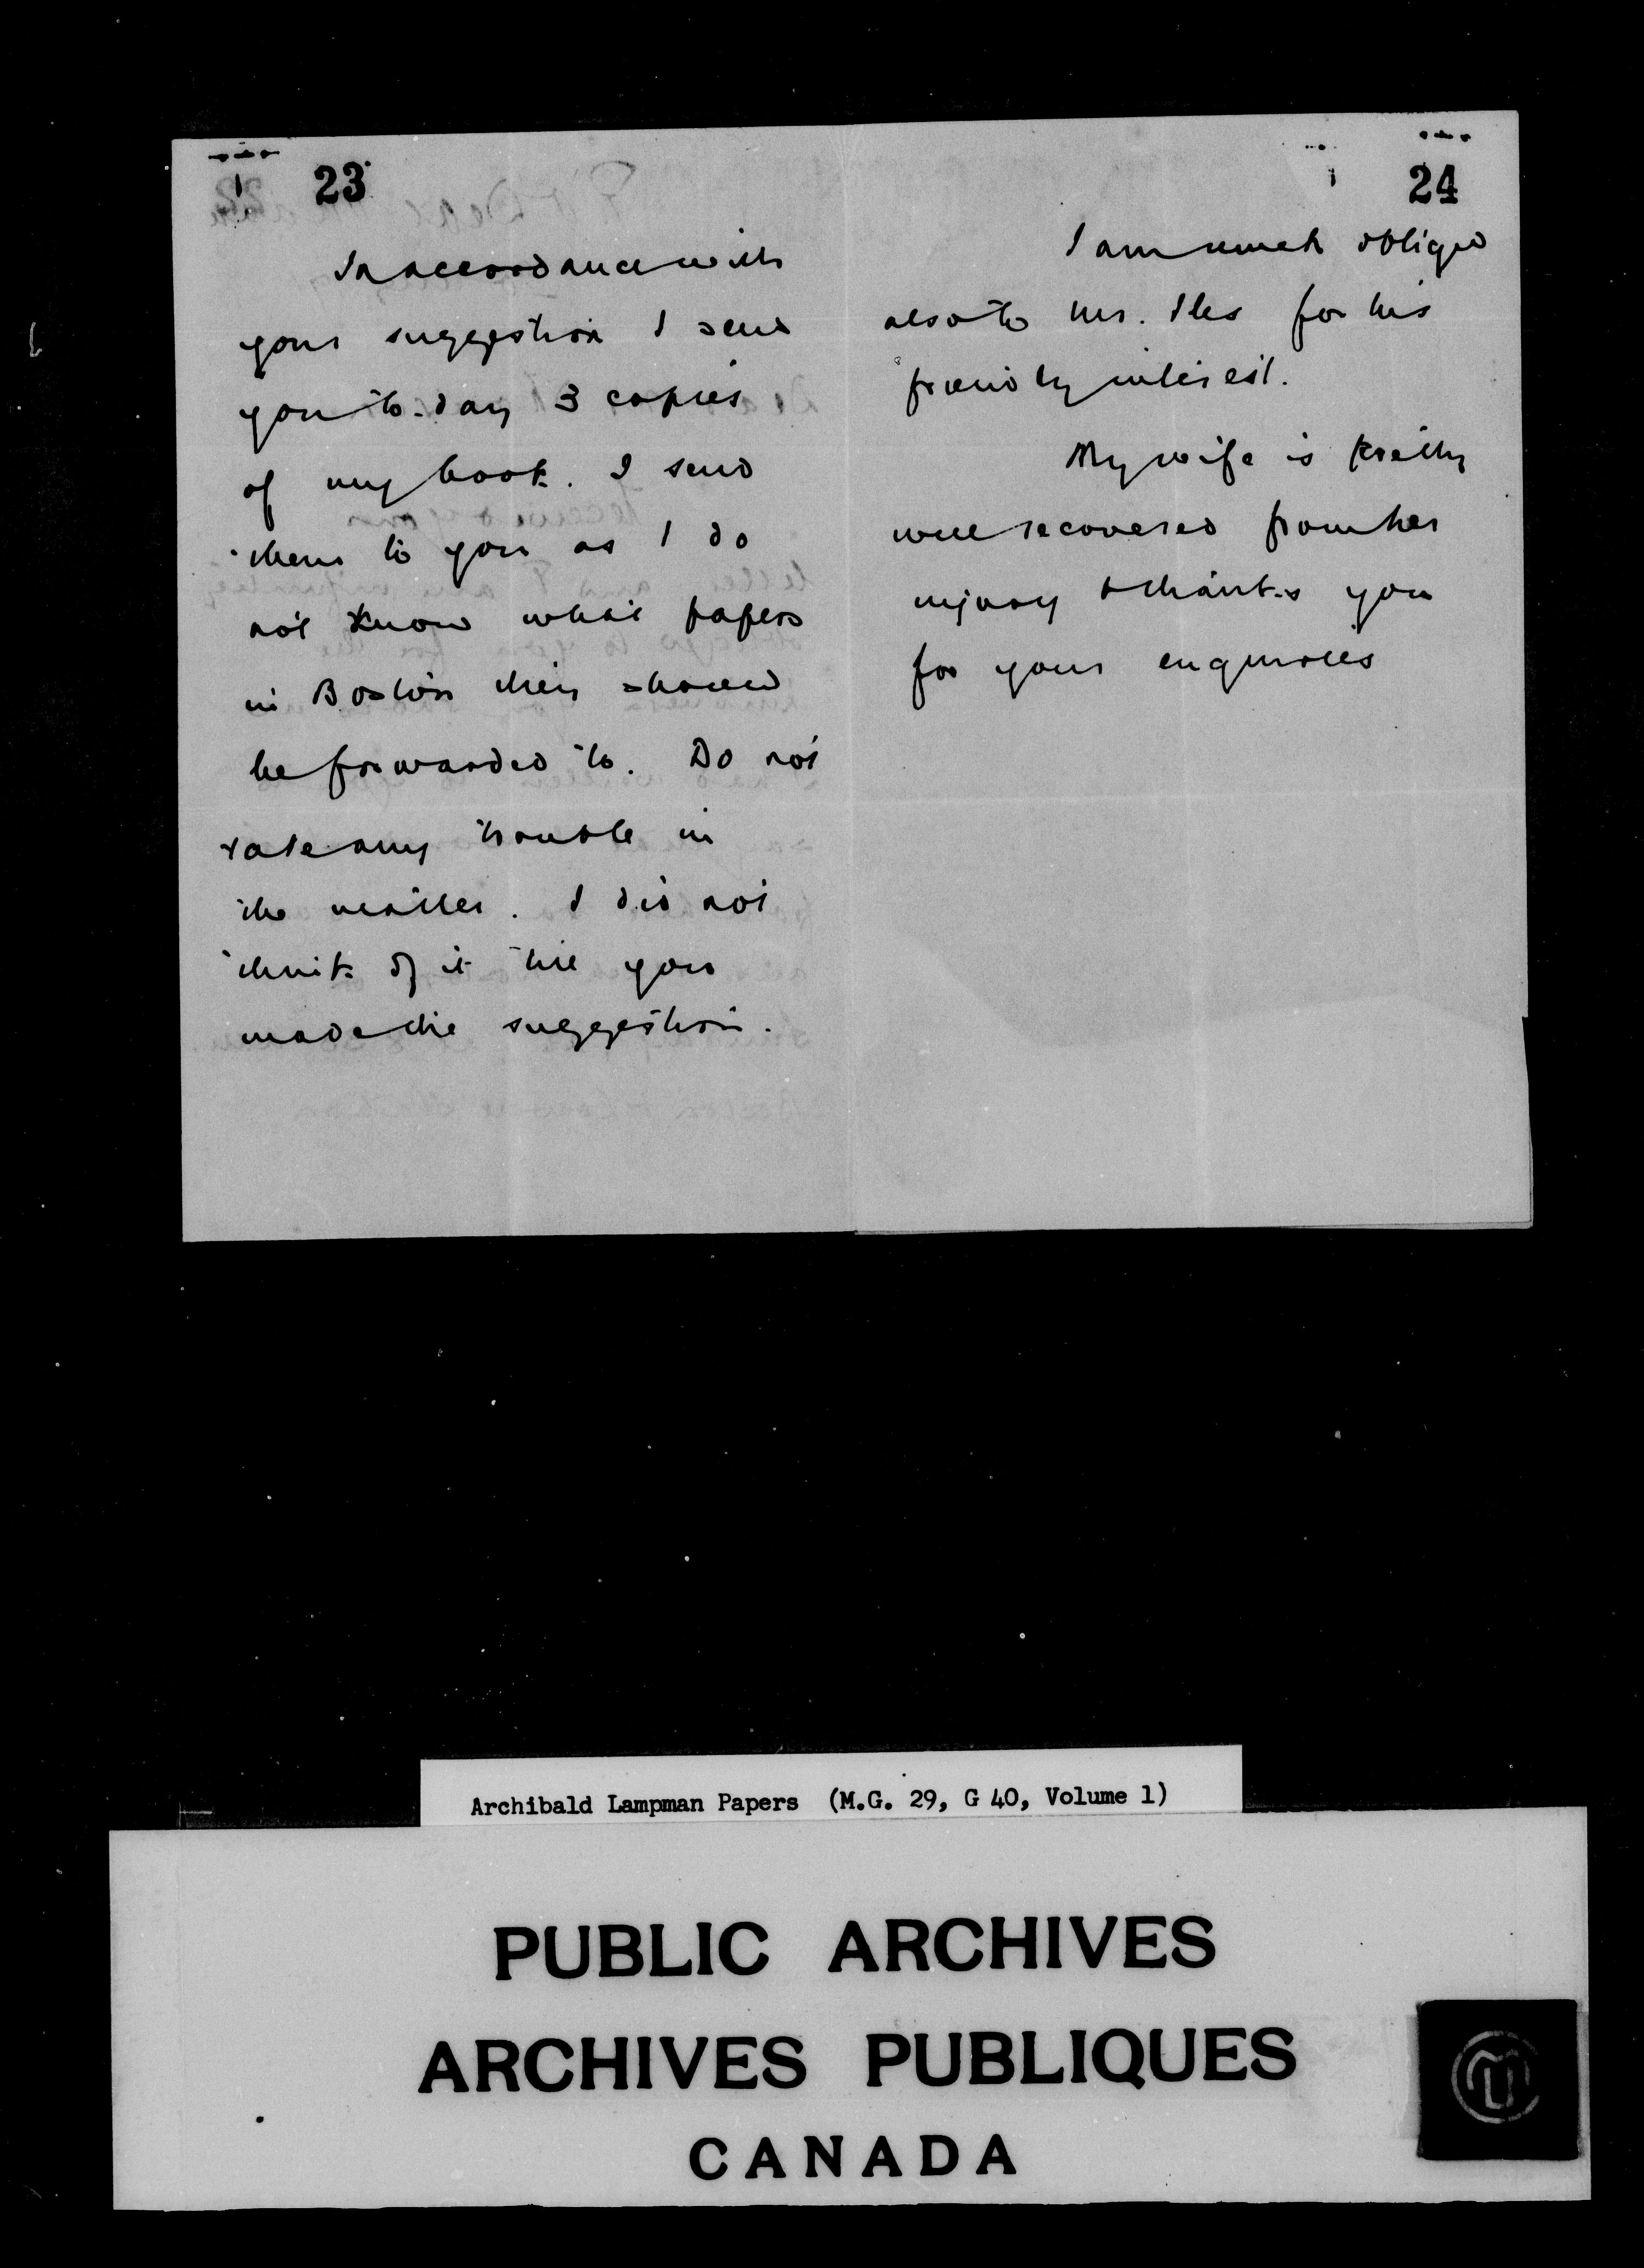 23
In accordance with
your suggestion I send
you to-day 3 copies
of my book. I send
them to you as I do
not know what papers
in Boston they should
be forwarded to. Do not
take any trouble in
the matter. I did not
think of it till you
made the suggestion.
24
I am much obliged
also to Mr. Iles for his
friendly interest.
My wife is pretty
well recovered from her
injury & thanks you
for your enquiries
Archibald Lampman Papers (M.G. 29, G 40, Volume 1)
PUBLIC ARCHIVES
ARCHIVES PUBLIQUES
CANADA